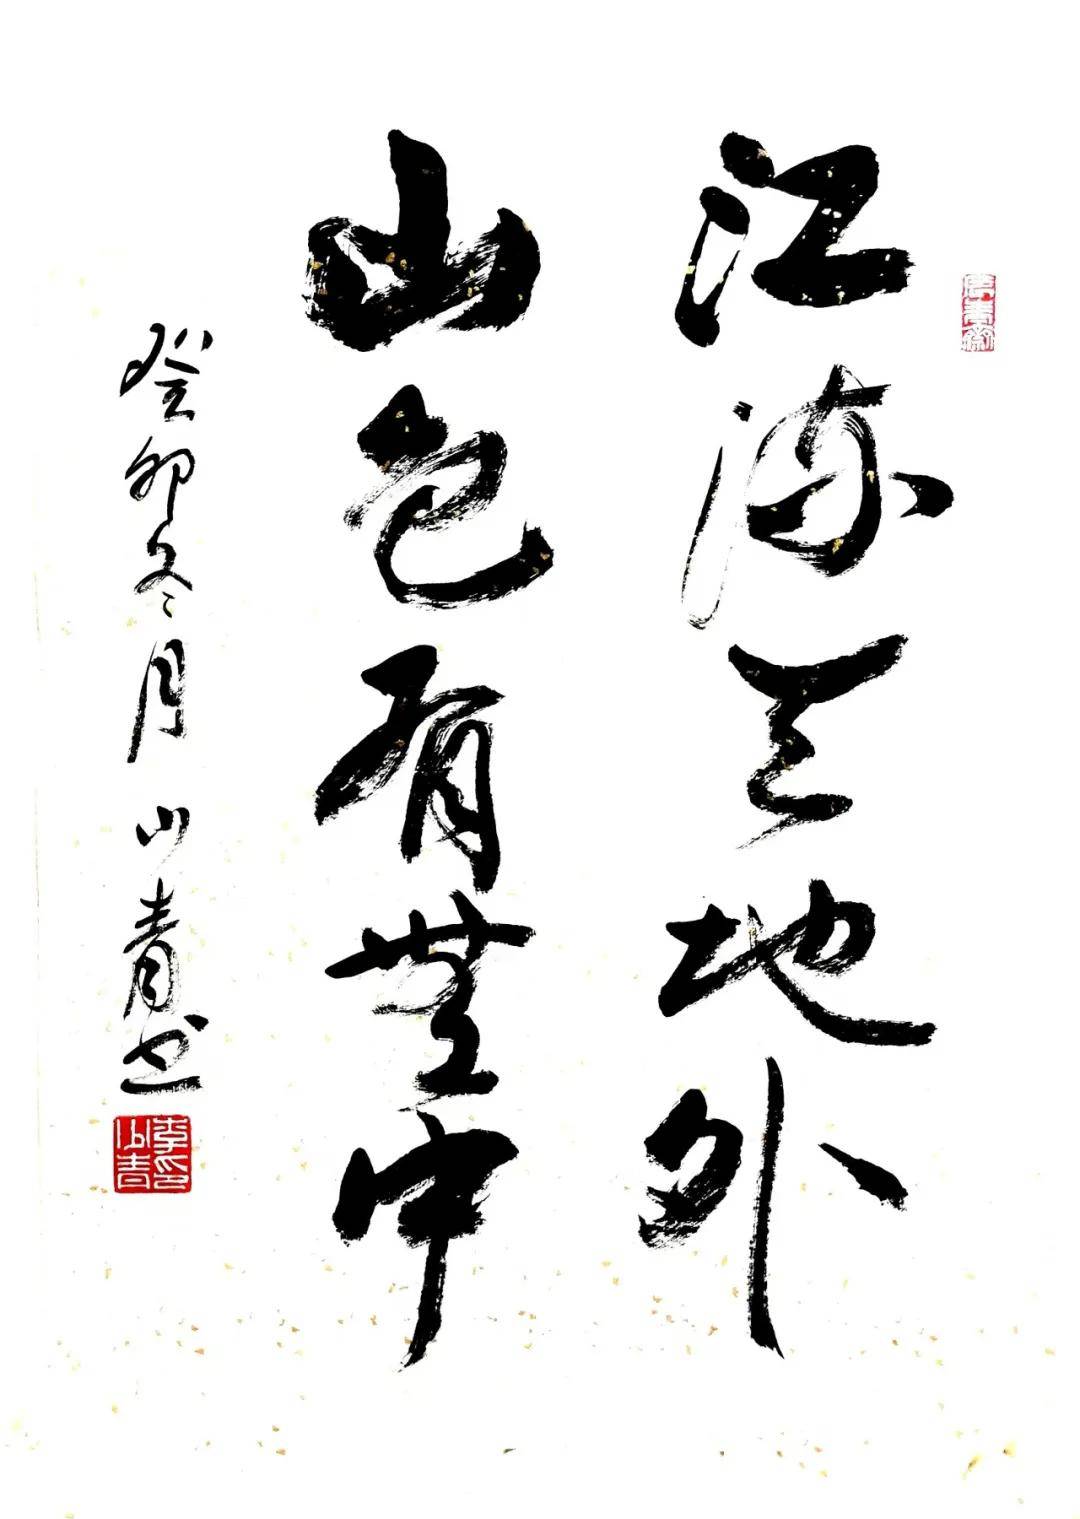 江流天地外
山色有無中
癸卯冬月 山青书
李山青印